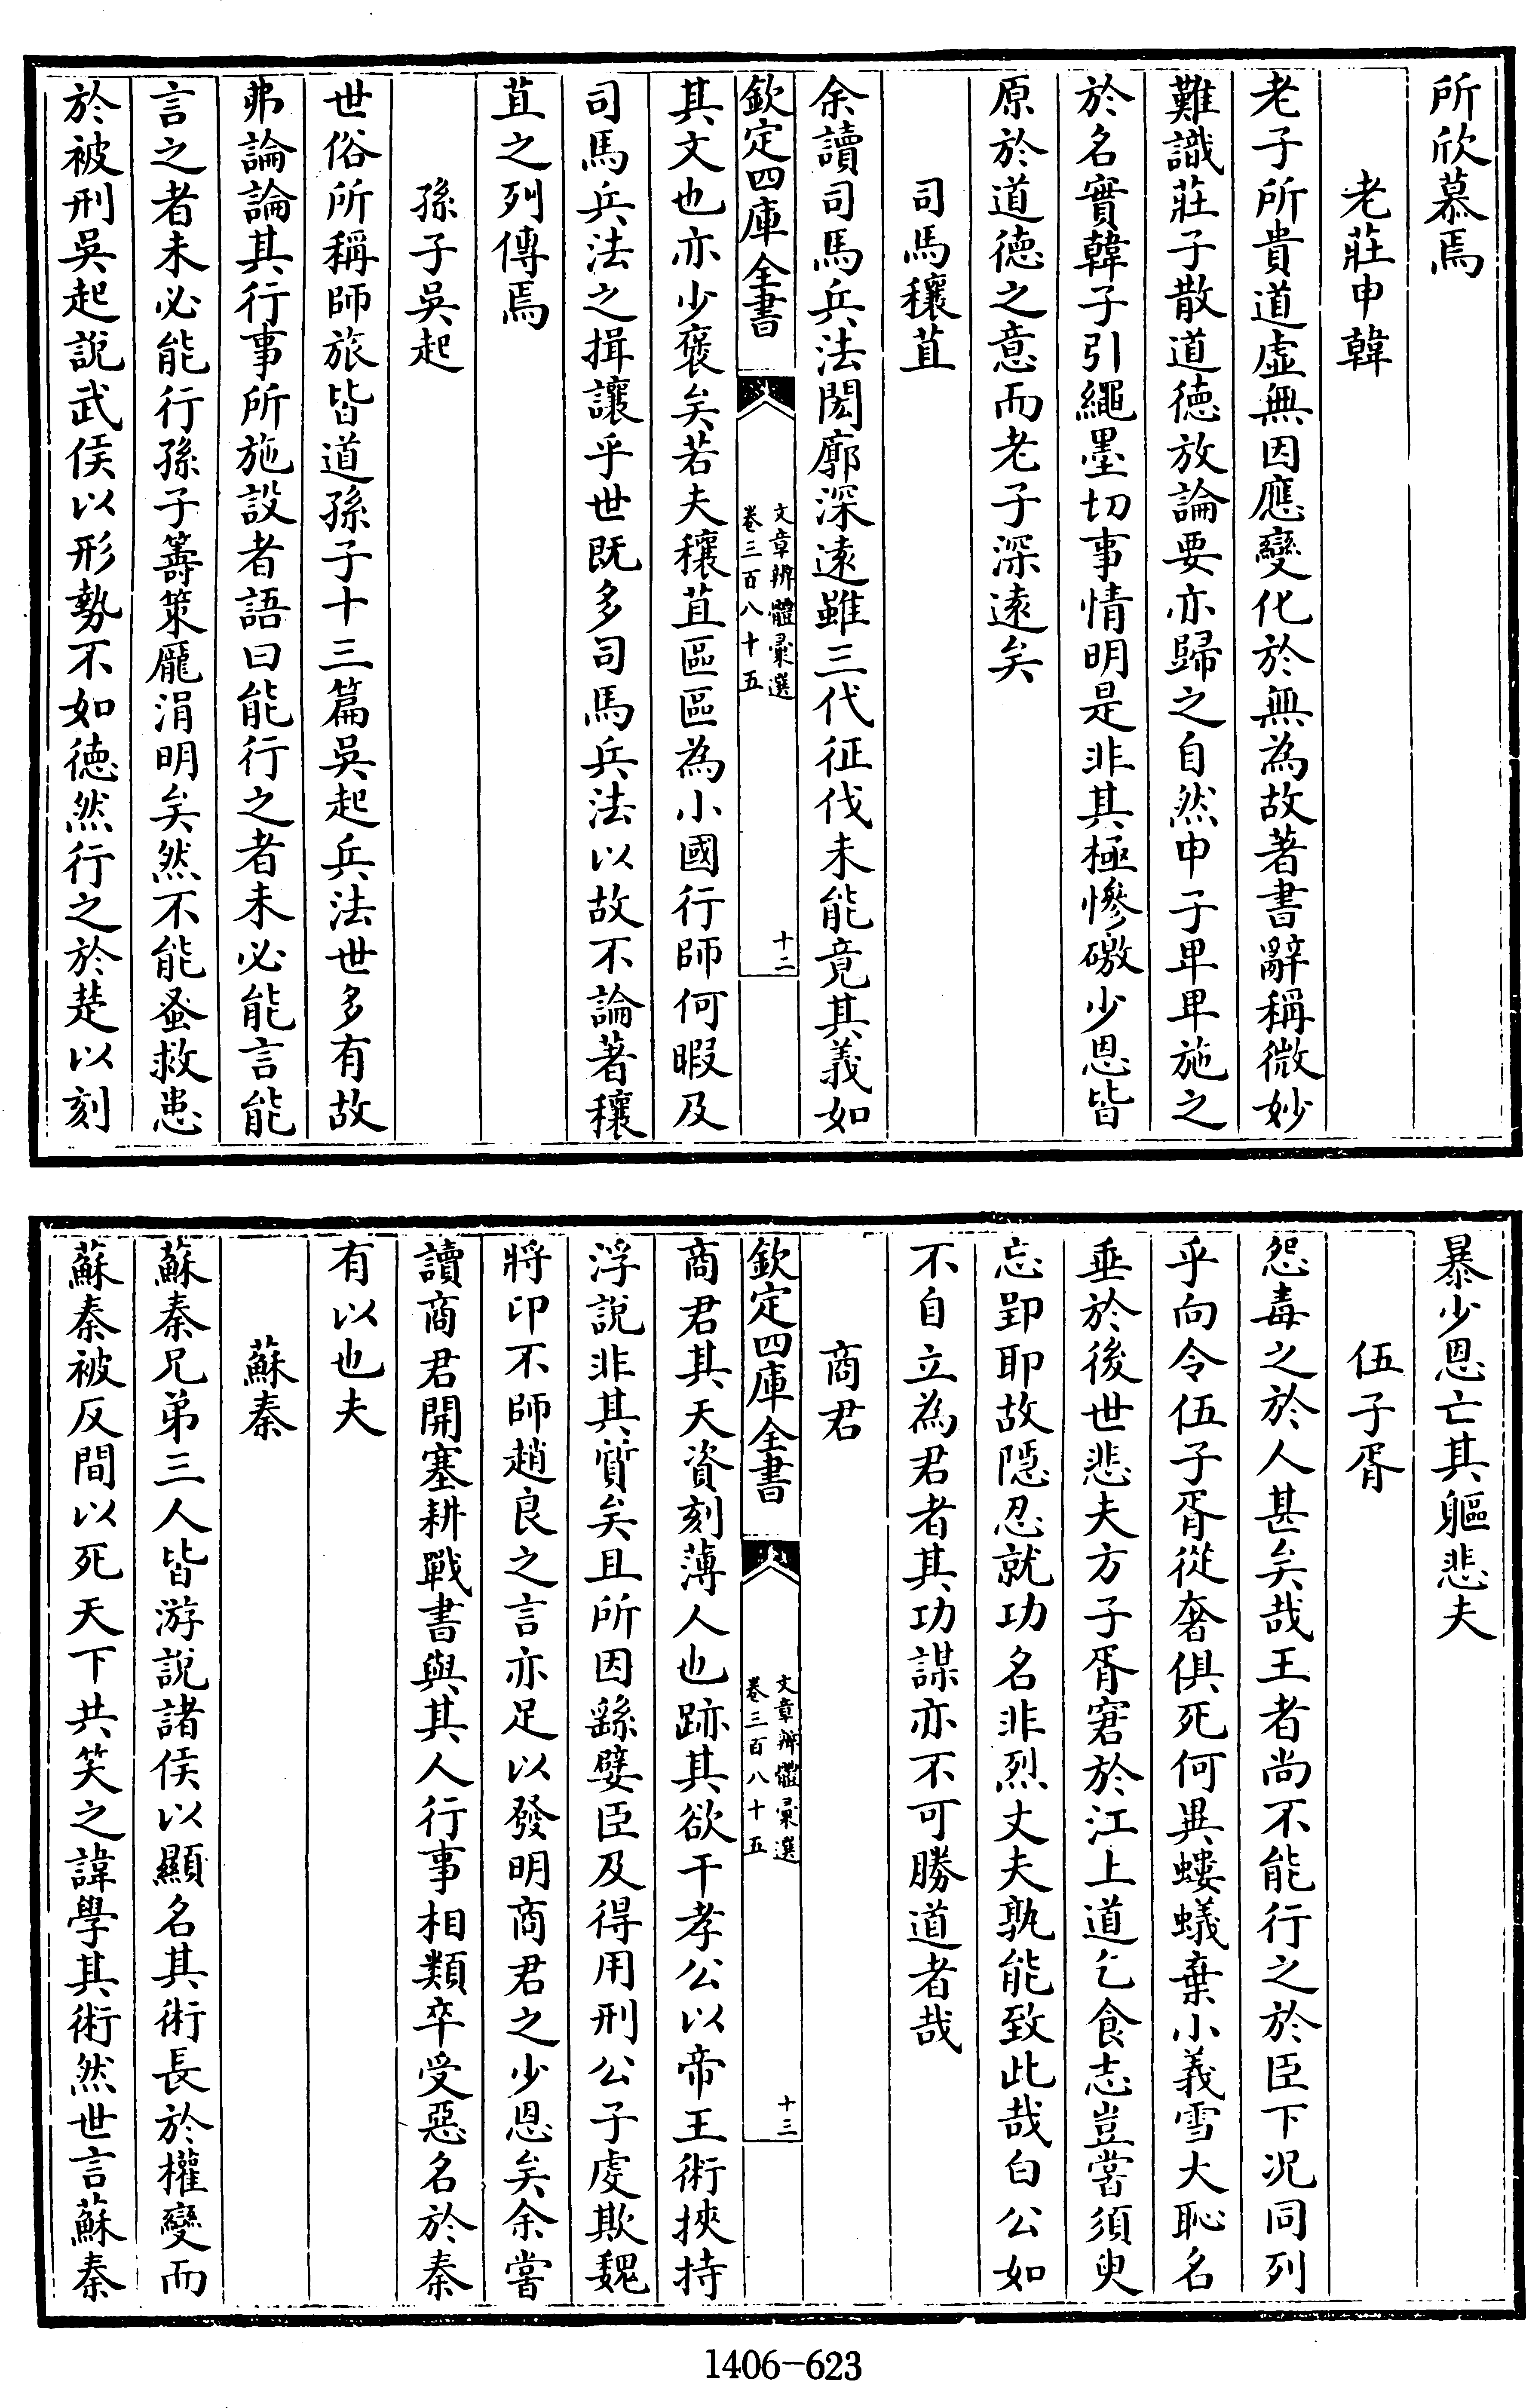 所欣慕焉
老莊申韓
老子所貴道虛無因應變化於無為故著書辭稱微妙
難識莊子散道德放論要亦歸之自然申子卑卑施之
於名實韓子引繩墨切事情明是非其極慘礉少恩皆
原於道德之意而老子深遠矣
司馬穰苴
余讀司馬兵法閎廓深遠雖三代征伐未能竟其義如
欽定四庫全書
文章辨體彙選
卷三百八十五
十二
其文也亦少褒矣若夫穰苴區區為小國行師何暇及
司馬兵法之揖讓乎世既多司馬兵法以故不論著穰
苴之列傳焉
孫子吳起
世俗所稱師旅皆道孫子十三篇吳起兵法世多有故
弗論論其行事所施設者語曰能行之者未必能言能
言之者未必能行孫子籌策龐涓明矣然不能蚤救患
於被刑吳起說武侯以形勢不如德然行之於楚以刻
暴少恩亡其軀悲夫
伍子胥
怨毒之於人甚矣哉王者尚不能行之於臣下况同列
乎向令伍子胥從奢俱死何異螻蟻棄小義雪大恥名
垂於後世悲夫方子胥窘於江上道乞食志豈嘗須臾
忘郢耶故隱忍就功名非烈丈夫孰能致此哉白公如
不自立為君者其功謀亦不可勝道者哉
商君
欽定四庫全書
文章辨體彙選
卷三百八十五
十三
商君其天資刻薄人也跡其欲干孝公以帝王術挾持
浮說非其質矣且所因繇嬖臣及得用刑公子虔欺魏
將卬不師趙良之言亦足以發明商君之少恩矣余嘗
讀商君開塞耕戰書與其人行事相類卒受惡名於秦
有以也夫
蘇秦
蘇秦兄弟三人皆游說諸侯以顯名其術長於權變而
蘇秦被反間以死天下共笑之諱學其術然世言蘇秦
1406-623